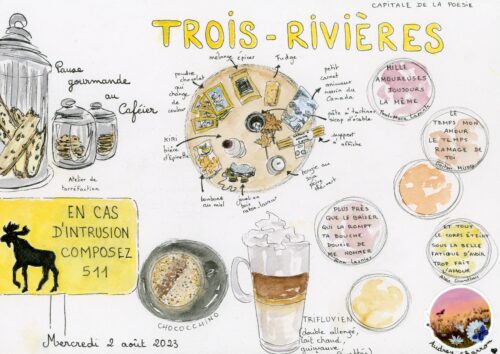 CAPITALE DE LA POÉSIE
TROIS-RIVIÈRES
Pause
gourmande
au
Caféier
Atelier de
torréfaction
mélange épices
fudge
poudre
chocolat
qui
change
de
couleur
petit
carnet
animaux
marin du
Canada
pâte à tartiner
sirop d'érable
support
affiche
KIRI
bière
d'épinette
bonbons
au miel
jouet en
bois
raton-laveur
bougie au
soja
MILLE
AMOUREUSES
TOUJOURS
LA MÊME
LE
TEMPS MON
AMOUR
LE TEMPS
RAMAGE DE
TOI
PLUS PRÈS
QUE LE BAISER
QUI LA ROMPT
TA BOUCHE
DOUCIE DE
ME NOMMER
ET TOUT
LE CORPS ÉTEINT
SOUS LA BELLE
FATIGUE D'AVOIR
TROP FAIT
L'AMOUR
EN CAS
D'INTRUSION
COMPOSEZ
511
CHOCOCCHINO
TRIFLUVIEN
(double allongé,
lait chaud,
guimauve,
Mercredi 2 août 2023
Audrey